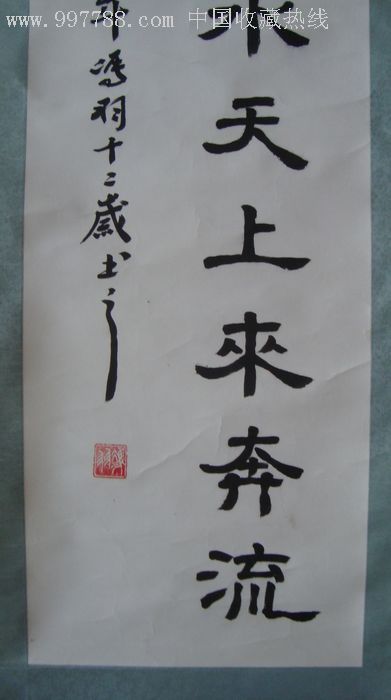 www.997788.com 中国收藏热线
水天上來奔流
冯羽十二歲书之